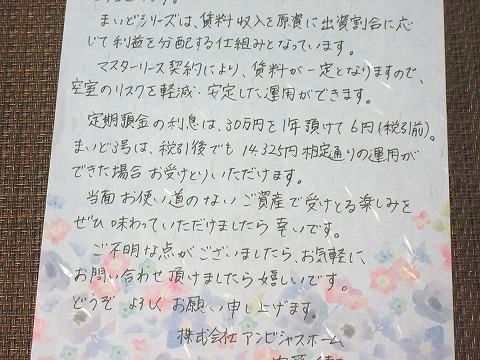 まいどシリーズは、賃料収入を原資に出資割合に応
じて利益を分配する仕組みとなっています。
マスターリース契約により、賃料が一定となりますので、
空室のリスクを軽減・安定した運用ができます。
定期預金の利息は、30万円を1年預けて6円(税引前)。
まいど3号は、税引後でも14,325円想定通りの運用が
できた場合お受けとりいただけます。
当面お使い道のないご資産で受けとる楽しみを
ぜひ味わっていただけましたら幸いです。
ご不明な点がございましたら、お気軽に
お問い合わせ頂けましたら嬉しいです。
どうぞよろしくお願い申し上げます。
株式会社アンビシャスホーム